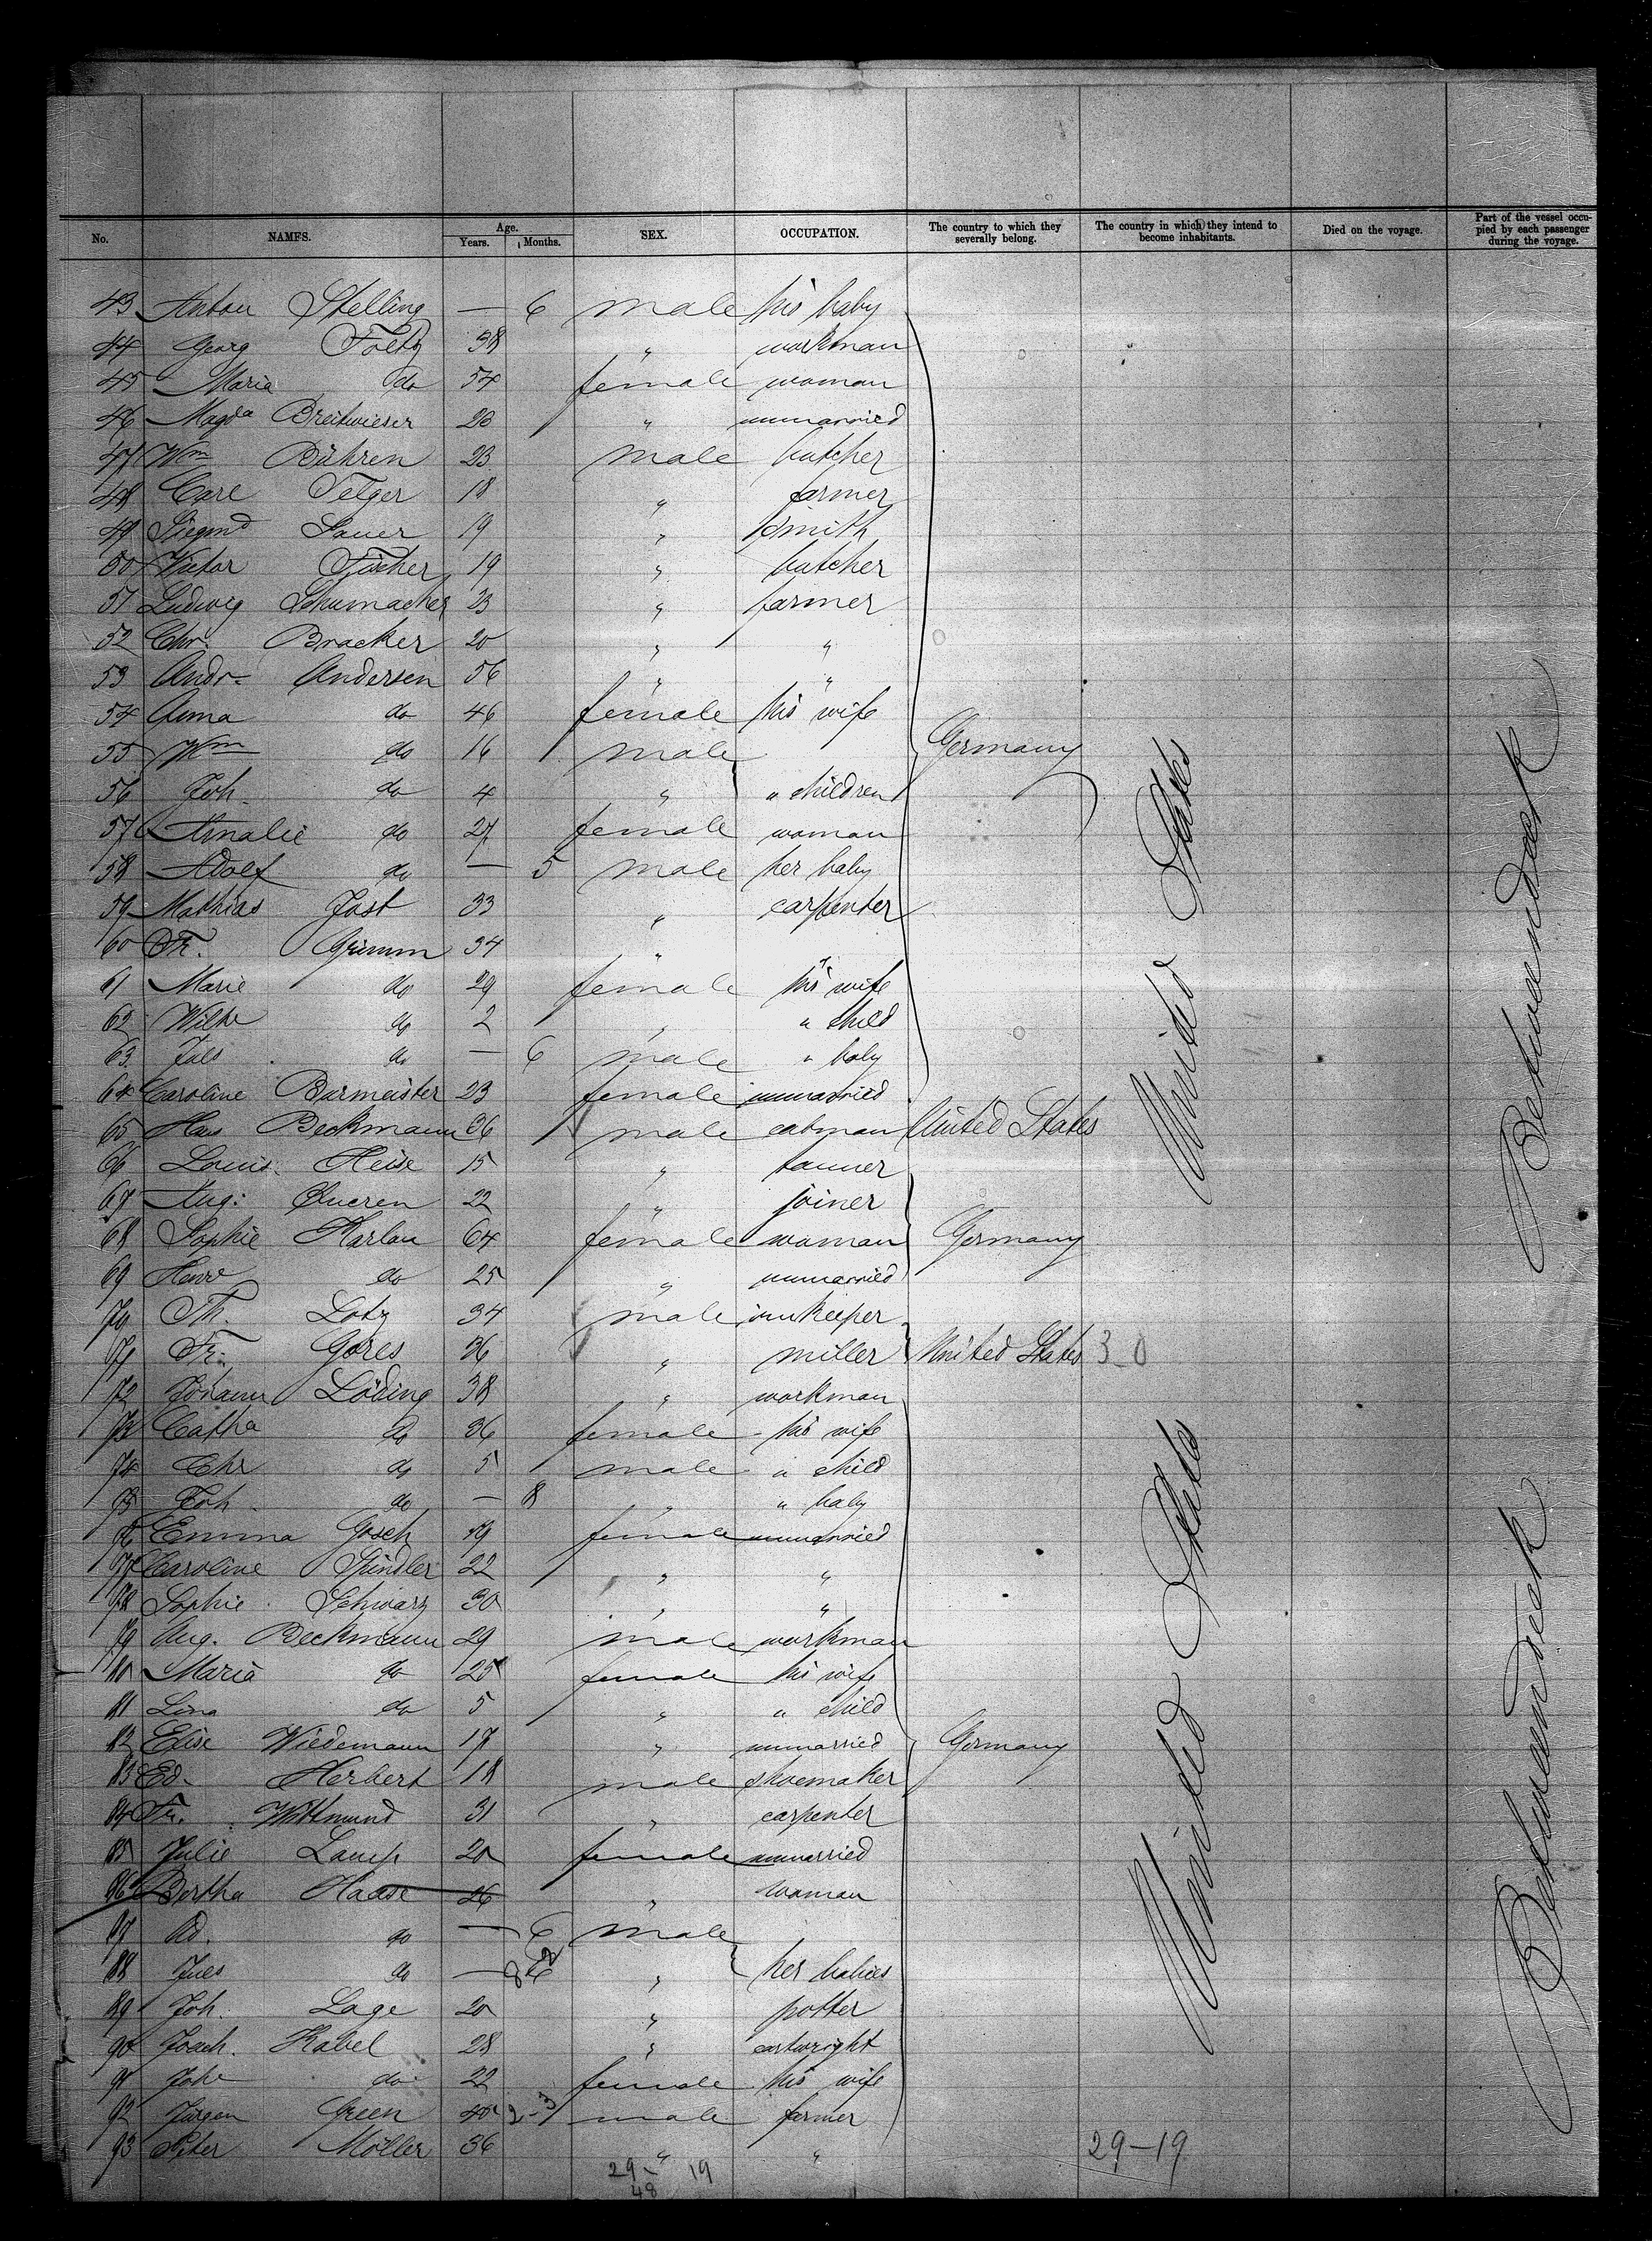 No. NAMES. Age. Years. Months. SEX. OCCUPATION. The country to which they severally belong. The country in which they intend to become inhabitants. Died on the voyage. Part of the vessel occupied by each passenger during the voyage.
43 Anton Stelling — 6 male his baby
44 Georg Foltz 38 " workman
45 Maria do 54 female woman
46 Magda Breitwieser 20 " unmarried
47 Wm Bühren 23 male butcher
48 Carl Telger 18 " farmer
49 Siegmd Sauer 19 " smith
50 Victor Fischer 19 " butcher
51 Ludwig Schumacher 23 " farmer
52 Chr. Bracker 20 " "
53 Andr. Andersen 56 " "
54 Anna do 46 female his wife
55 Wm do 16 male Germany
56 Joh. do 4 " " children
57 Amalie do 27 female woman
58 Adolf do — 5 male her baby
59 Mathias Jost 33 " carpenter
60 Fr. Grimm 34 " "
61 Marie do 29 female his wife
62 Wilhe do 2 " " child
63 Juls do — 6 male " baby
64 Caroline Burmeister 23 female unmarried
65 Hans Beckmann 36 male cabman United States
66 Louis Heise 15 " tanner
67 Aug. Queren 22 " joiner
68 Sophie Harlau 64 female woman Germany
69 Henre do 25 " unmarried
70 Th. Lotz 34 male innkeeper
71 Fr. Gores 36 " miller United States 3-0
72 Johann Löding 38 " workman
73 Catha do 36 female his wife
74 Chr do 5 male " child
75 Joh. do — 8 " " baby
76 Emma Gosch 19 female unmarried
77 Caroline Spindler 22 " "
78 Sophie Schwarz 30 " "
79 Aug. Beckmann 29 male workman
80 Maria do 25 female his wife
81 Lina do 5 " " child
82 Elise Wiedemann 17 " unmarried Germany
83 Ed. Herbert 18 male shoemaker
84 Fr. Wittmund 31 " carpenter
85 Julie Lamp 20 female unmarried
86 Bertha Haase 26 " woman
87 Ad. do — 6 male
88 Jules do — " her babies
89 Joh. Lage 20 " potter
90 Joach. Kabel 28 " cartwright
91 Johe do 22 female his wife
92 Jürgen Green 40 2-3 male farmer
93 Peter Möller 36 " "
29-19
29-19
48
United States
United States
Betweendeck
Betweendeck